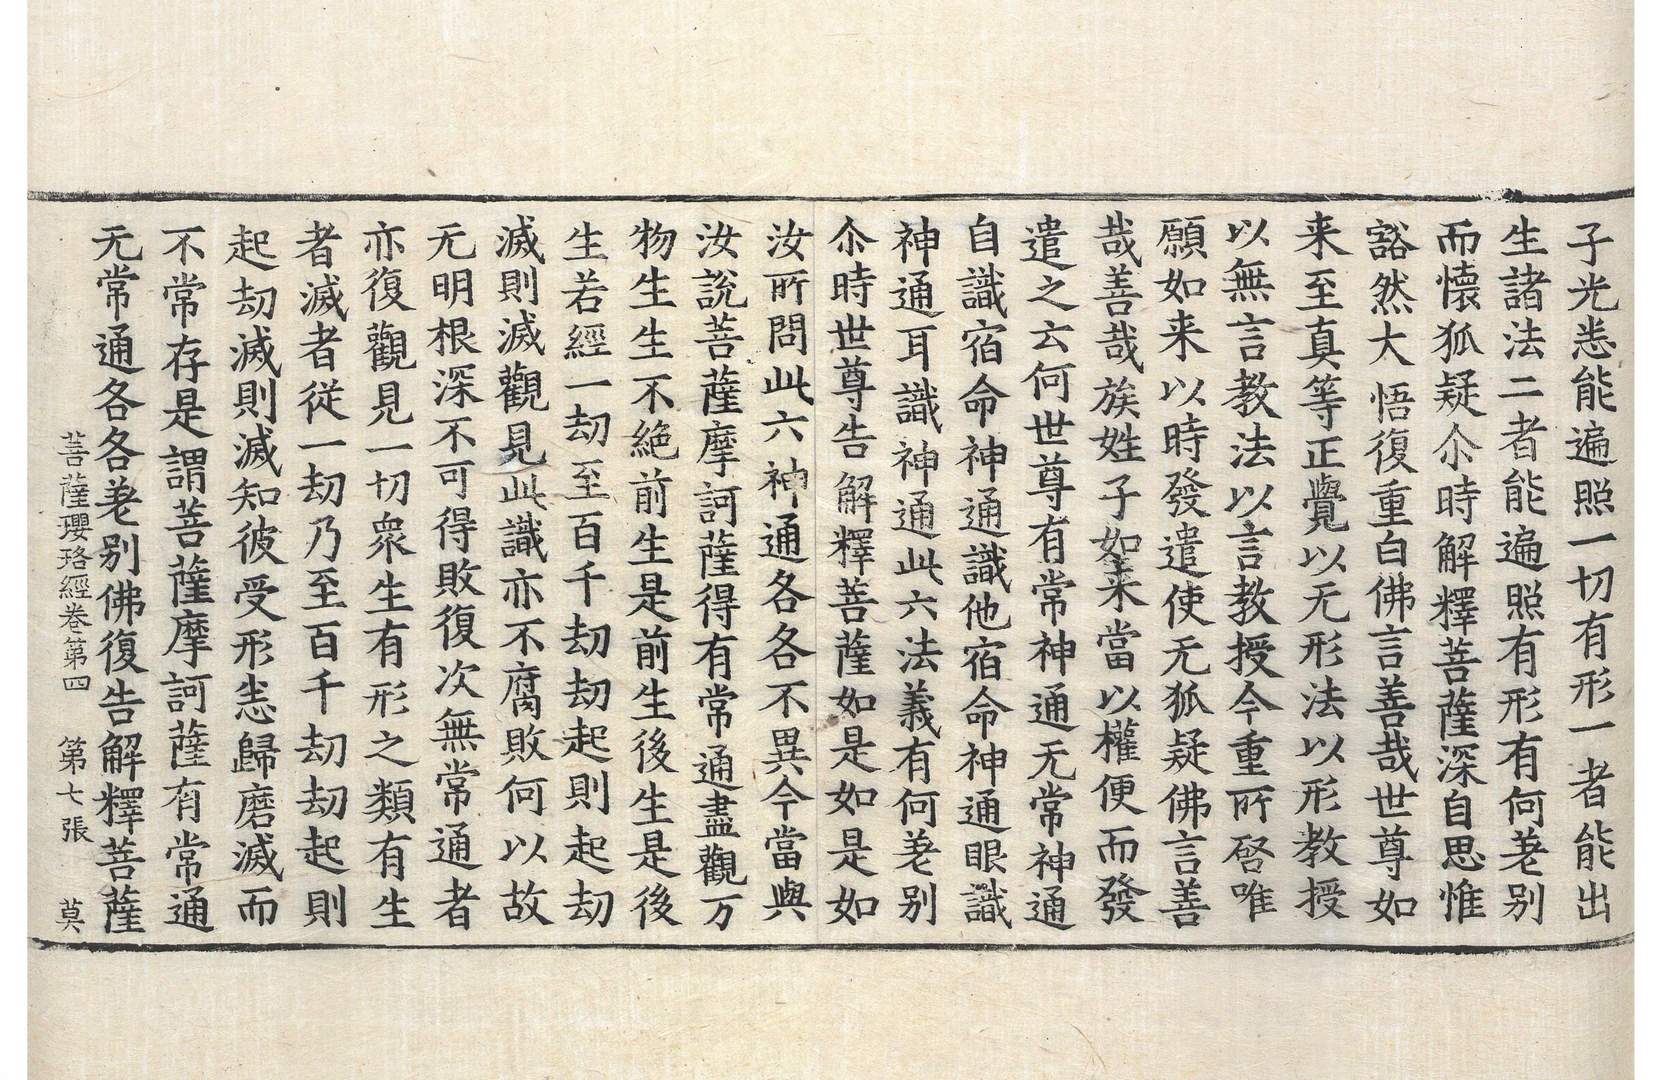 子光恙能遍照一切有形一者能出
生諸法二者能遍照有形有何差别
而懐狐疑尒時解釋菩薩深自思惟
豁然大悟復重白佛言善哉世尊如
来至真等正覺以无形法以形教授
以無言教法以言教授今重所啓唯
願如来以時發遣使无狐疑佛言善
哉善哉族姓子如来當以權便而發
遣之云何世尊有常神通无常神通
自識宿命神通識他宿命神通眼識
神通耳識神通此六法義有何差别
尒時世尊告解釋菩薩如是如是如
汝所問此六神通各各不異今當與
汝說菩薩摩訶薩得有常通盡觀万
物生生不絶前生是前生後生是後
生若經一劫至百千劫劫起則起劫
滅則滅觀見此識亦不腐敗何以故
无明根深不可得敗復次無常通者
亦復觀見一切衆生有形之類有生
者滅者從一劫乃至百千劫劫起則
起劫滅則滅知彼受形恙歸磨滅而
不常存是謂菩薩摩訶薩有常通
无常通各各差别佛復告解釋菩薩
菩薩瓔珞經卷第四 第七張 莫